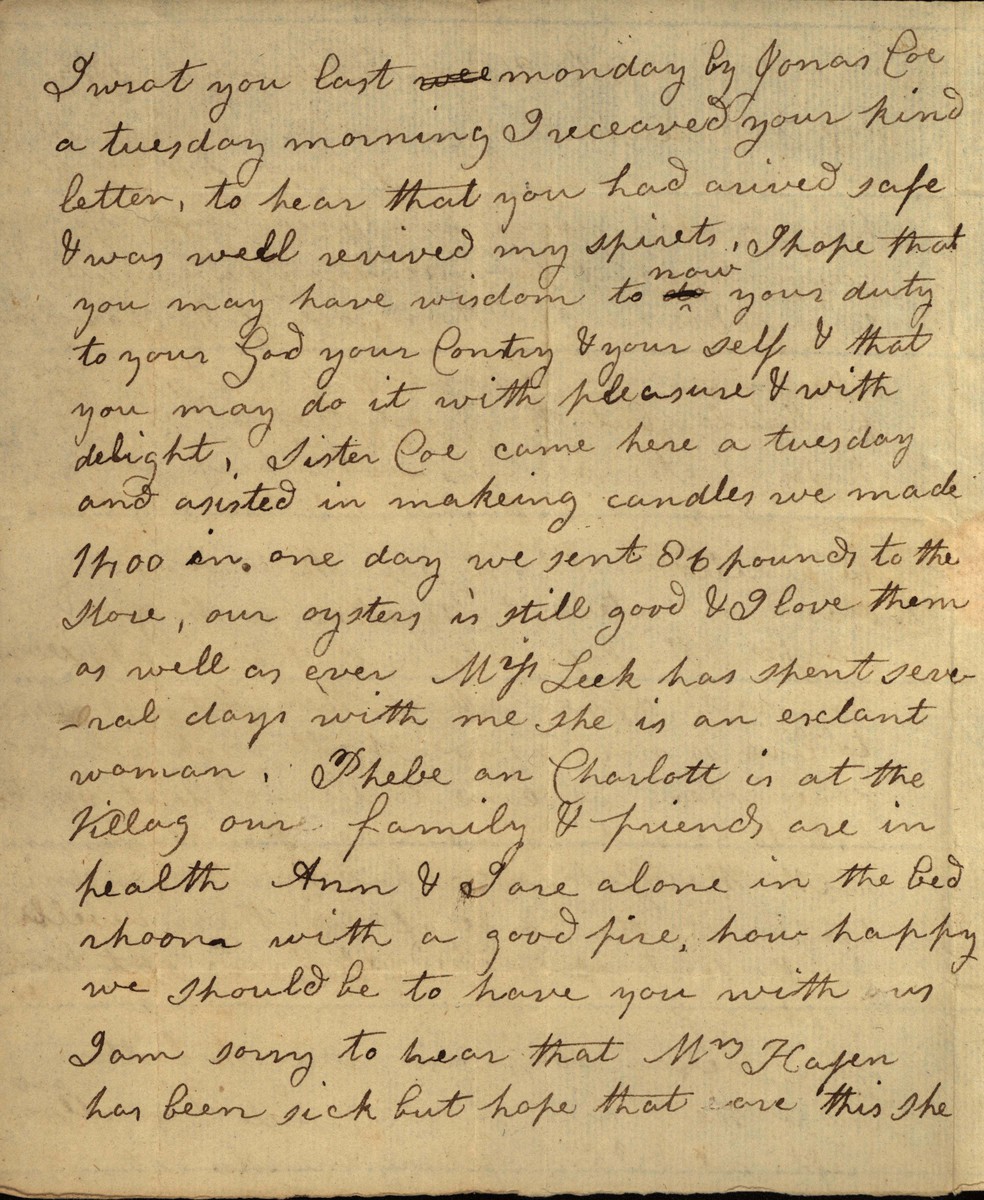 I wrot you last wee monday by Jonas Coe
a tuesday morning I receaved your kind
letter, to hear that you had arived safe
& was well revived my spirets, I hope that
you may have wisdom to do now your duty
to your God your Contry & your self & that
you may do it with pleasure & with
delight, Sister Coe came here a tuesday
and asisted in makeing candles we made
1400 in one day we sent 86 pounds to the
store, our oysters is still good & I love them
as well as ever Leek has spent seve
-ral days with me she is an exclant
woman, Phebe an Charlott is at the
Villag our family & friends are in
health Ann & I are alone in the bed
rhoom with a good fire, how happy
we should be to have you with us
I am sorry to hear that Mrs
has been sick but hope that are this she